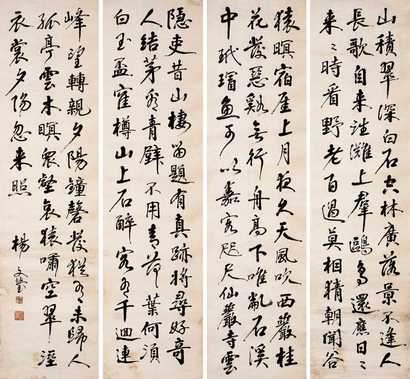 山積翠深白石空林廣落景不逢人
長歌自来往灘上群鷗鳥還應日日
来来時看野老百過莫相猜朝聞谷
猿暝宿崖上月夜久天風吹西巖桂
花發惡谿無行舟高下唯亂石溪
中玳瑁魚可以嘉客咫尺仙巖寺雲
隱吏昔山棲留題有真跡將尋好奇
人結茅看青壁不用青荷葉何須
白玉盃窪樽山上石醉客有千迴連
峰望轉親夕陽鐘磬發猶有未歸人
孤亭雲木暝眾壑哀猿嘯空翠溼
衣裳夕陽忽来照
楊文瑩